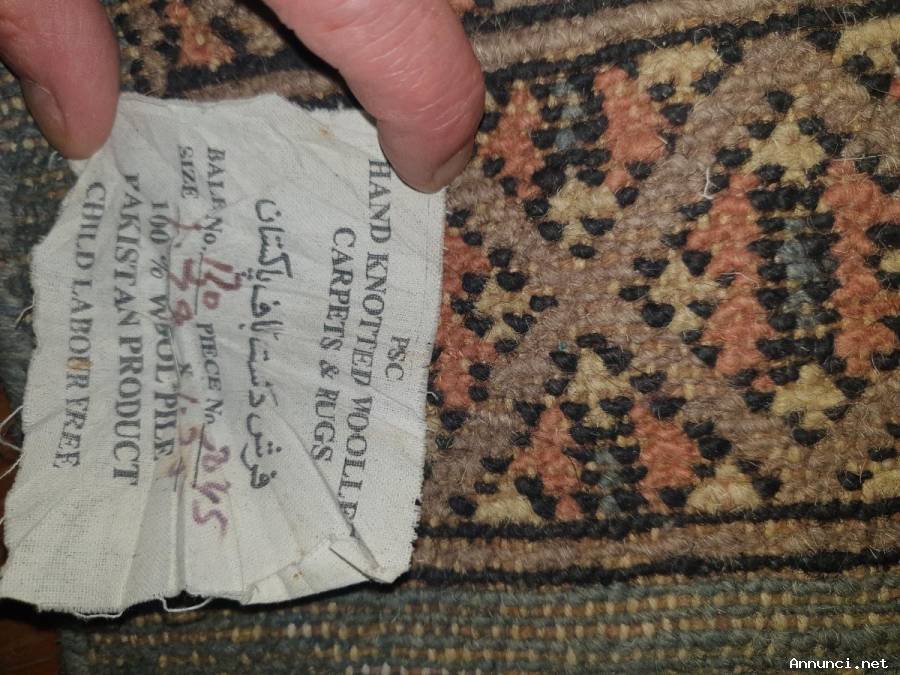 PSC
HAND KNOTTED WOOLLE
CARPETS & RUGS
فرش دستباف پاکستان
BALE No. PIECE No.
SIZE x
100% WOOL PILE
PAKISTAN PRODUCT
CHILD LABOUR FREE
Annunci.net